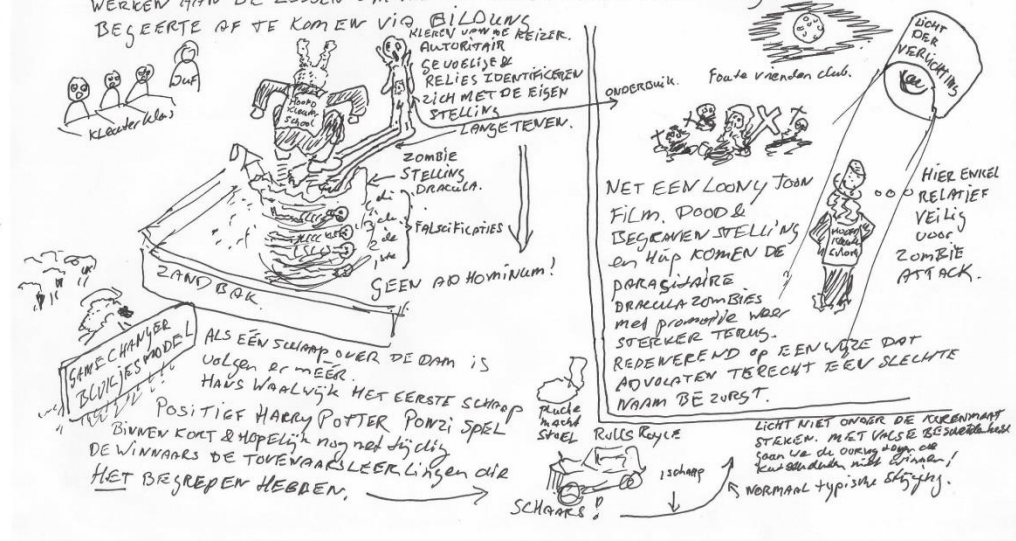 BEGEERTE AF TE KOMEN VIA BILDUNG
KLEREN VAN DE KEIZER.
AUTORITAIR
GEVOELIG &
RELIES IDENTIFICEREN
ZICH MET DE EIGEN
STELLING
LANGE TENEN.
JUF
Kleuterklas
HOOFD
Kleuter
School
ZOMBIE
STELLING
DRACULA.
FALSIFICATIES
1ste
ZANDBAK
GEEN AD HOMINUM!
GAMECHANGER
BLOKJESMODEL
ALS ÉÉN SCHAAP OVER DE DAM IS
volgen er MEER.
HANS WAALWIJK HET EERSTE SCHAAP
POSITIEF HARRY POTTER PONZI SPEL
BINNEN KORT & HOPELIJK nog net tijdig
DE WINNAARS DE TOVENAARSLEERLINGEN die
HET BEGREPEN HEBBEN.
ONDERDUIK.
Foute vrienden club.
LICHT
DER
VERLICHTING
NET EEN LOONY TOON
FILM. DOOD &
BEGRAVEN STELLING
en Hup KOMEN DE
PARASITAIRE
DRACULA ZOMBIES
met promotie weer
STERKER TERUG.
REDENEREND op EEN WIJZE DAT
ADVOCATEN TERECHT EEN SLECHTE
NAAM BEZORGT.
HIER ENKEL
RELATIEF
VEILIG
voor
ZOMBIE
ATTACK.
pluche
macht
STOEL
Rolls Royce
1 schaap
SCHAARS!
LICHT NIET ONDER DE KORENMAAT
STEKEN. MET VALSE
gaan we de oorlog
niet winnen!
NORMAAL typische